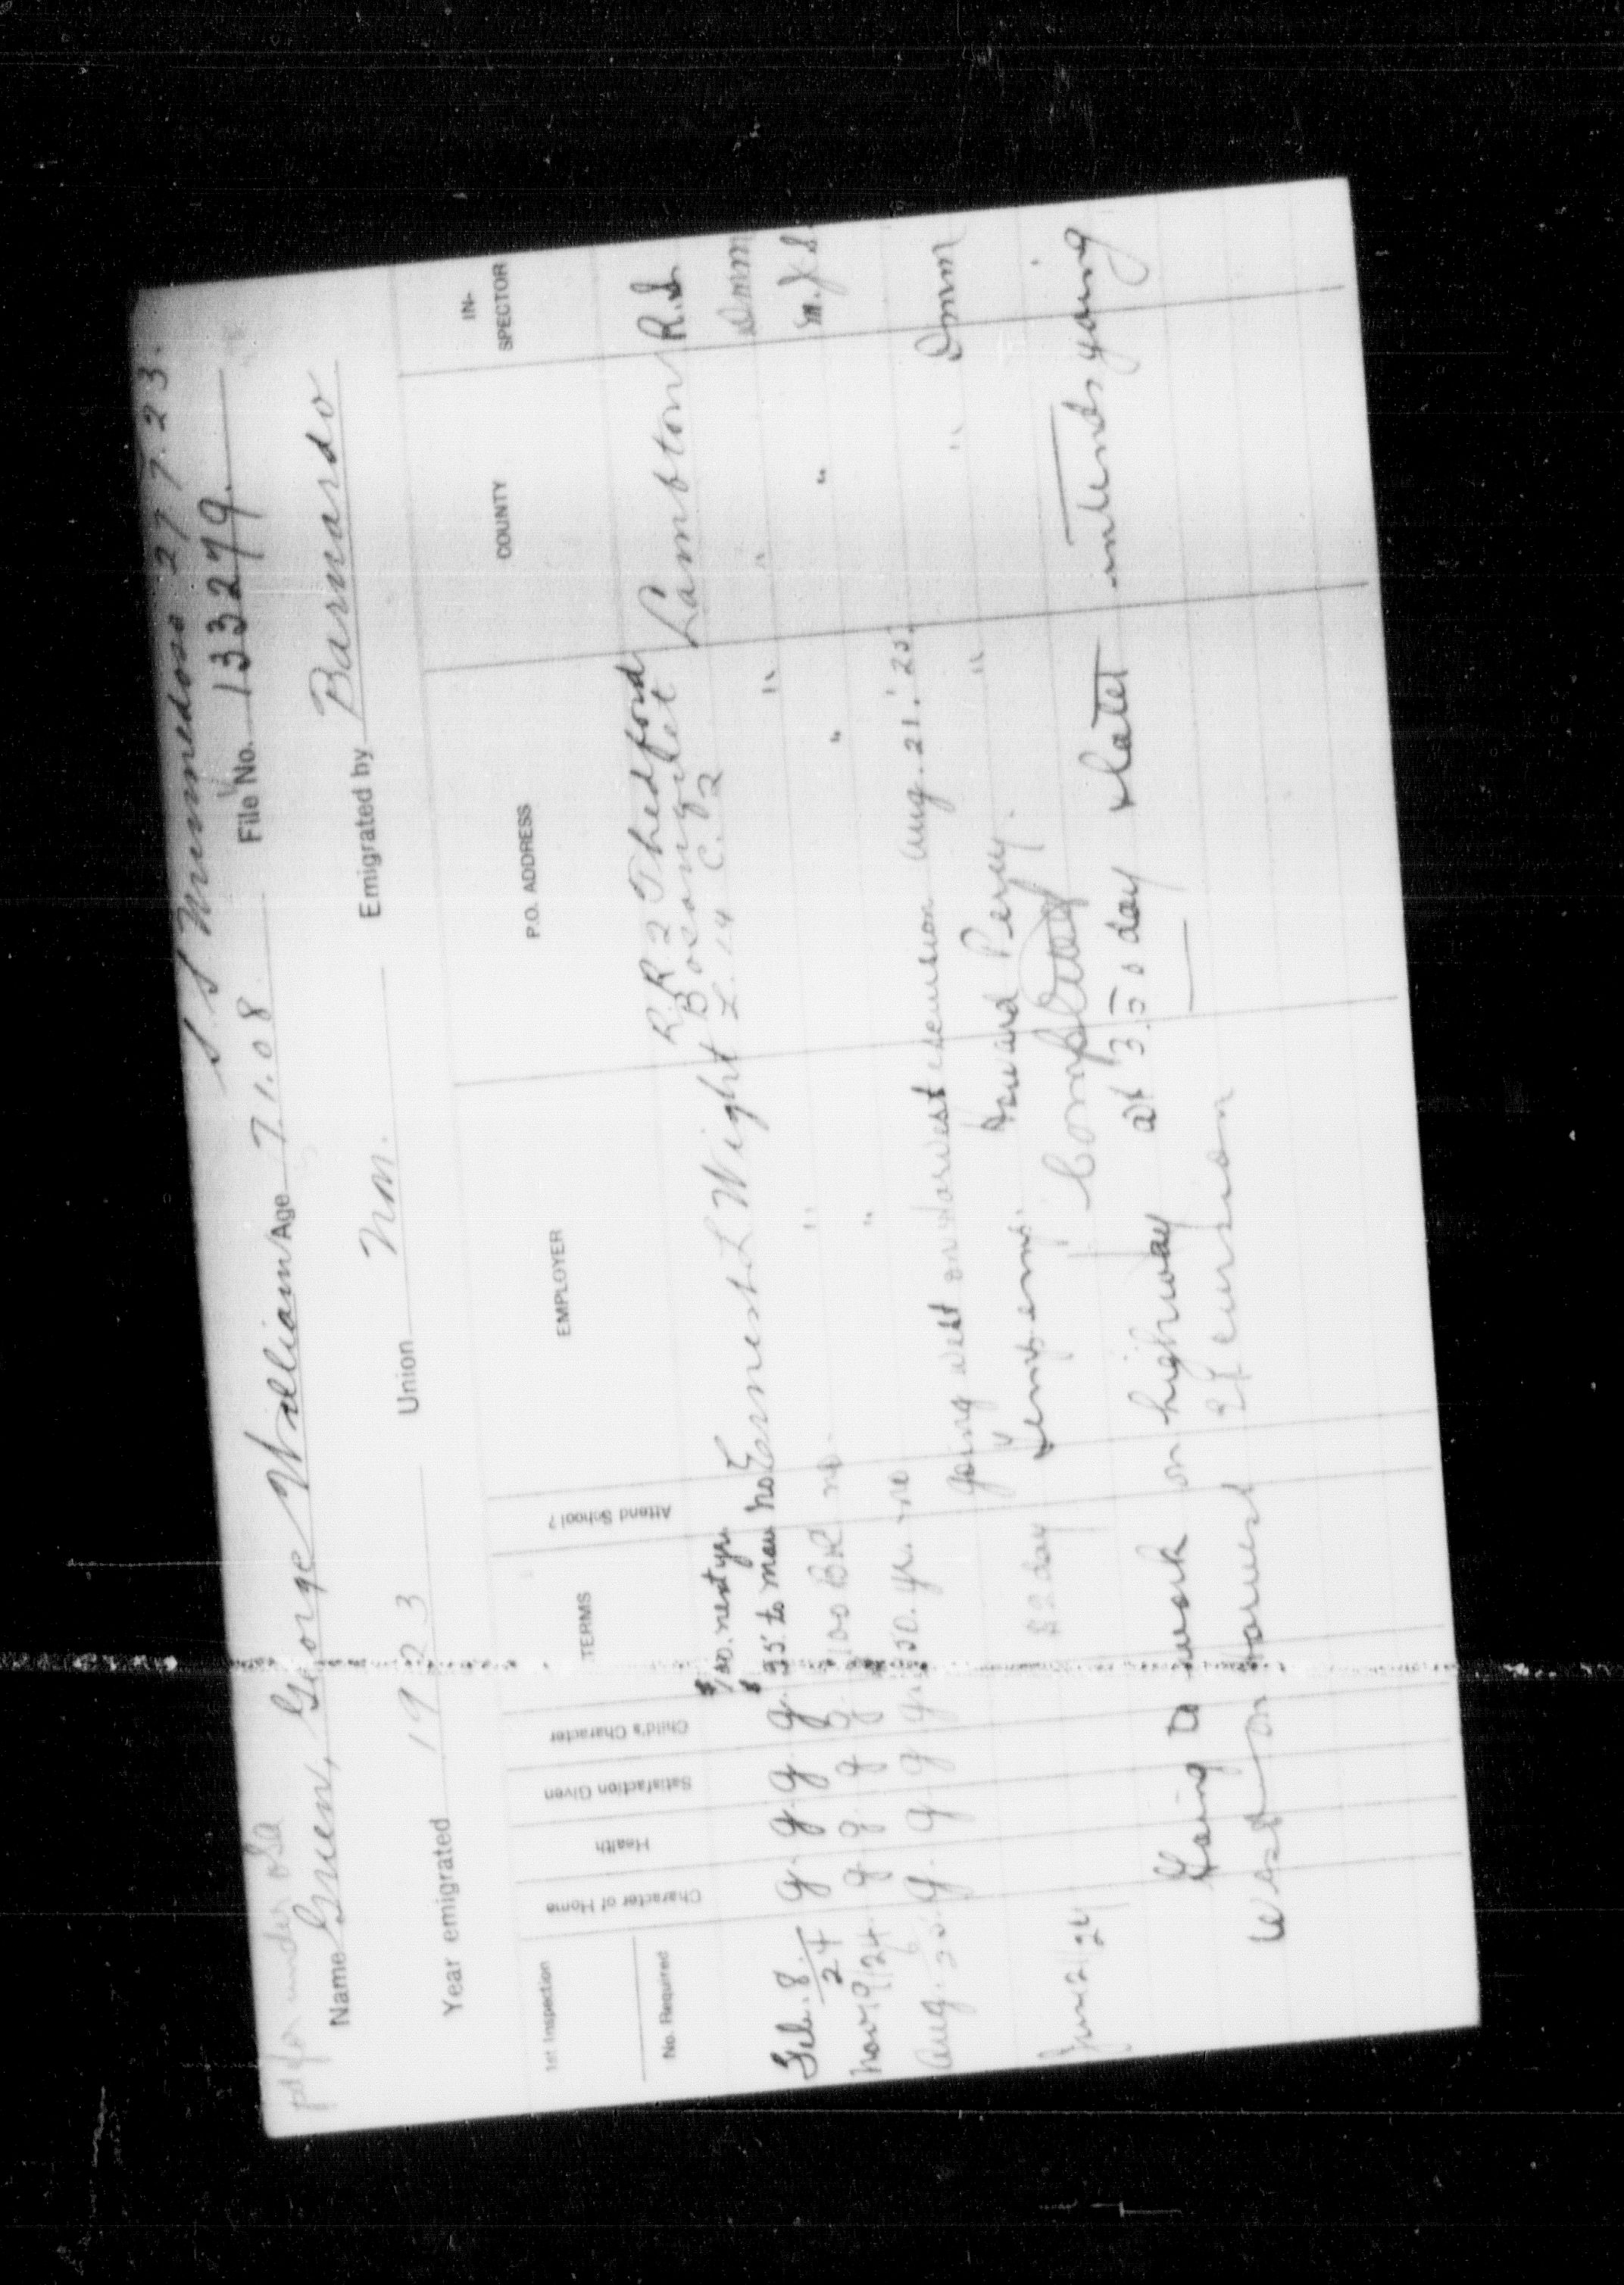 S.S. Minnedosa 27.7.23.
pd for under
Name Green, George William Age 7.1.08 File No. 133279.
Year emigrated 1923 Union Nm. Emigrated by Barnardo
1st Inspection
No. Required
Character of Home Health Satisfaction Given Child's Character TERMS Attend School? EMPLOYER P.O. ADDRESS COUNTY IN-SPECTOR
$100. next yr. R.R 2 Thedford
Feb. 8/24 g. g. g. g. $35 to mar no Ernest L Wight Bosanquet Lambton R.S.
L. 14 C. 2
Nov 19/24 g g g g 100 BR no " " " Dmm
Aug. 25. g. g g g 150. yr. no " " "
going west on harvest excursion Aug. 21. '25.
temp emp. Howard Perry. " " Dmm
June 21/24 $2 day Completed
Going to work on highway at 3.50 day & later intends going
West on Harvest Excursion